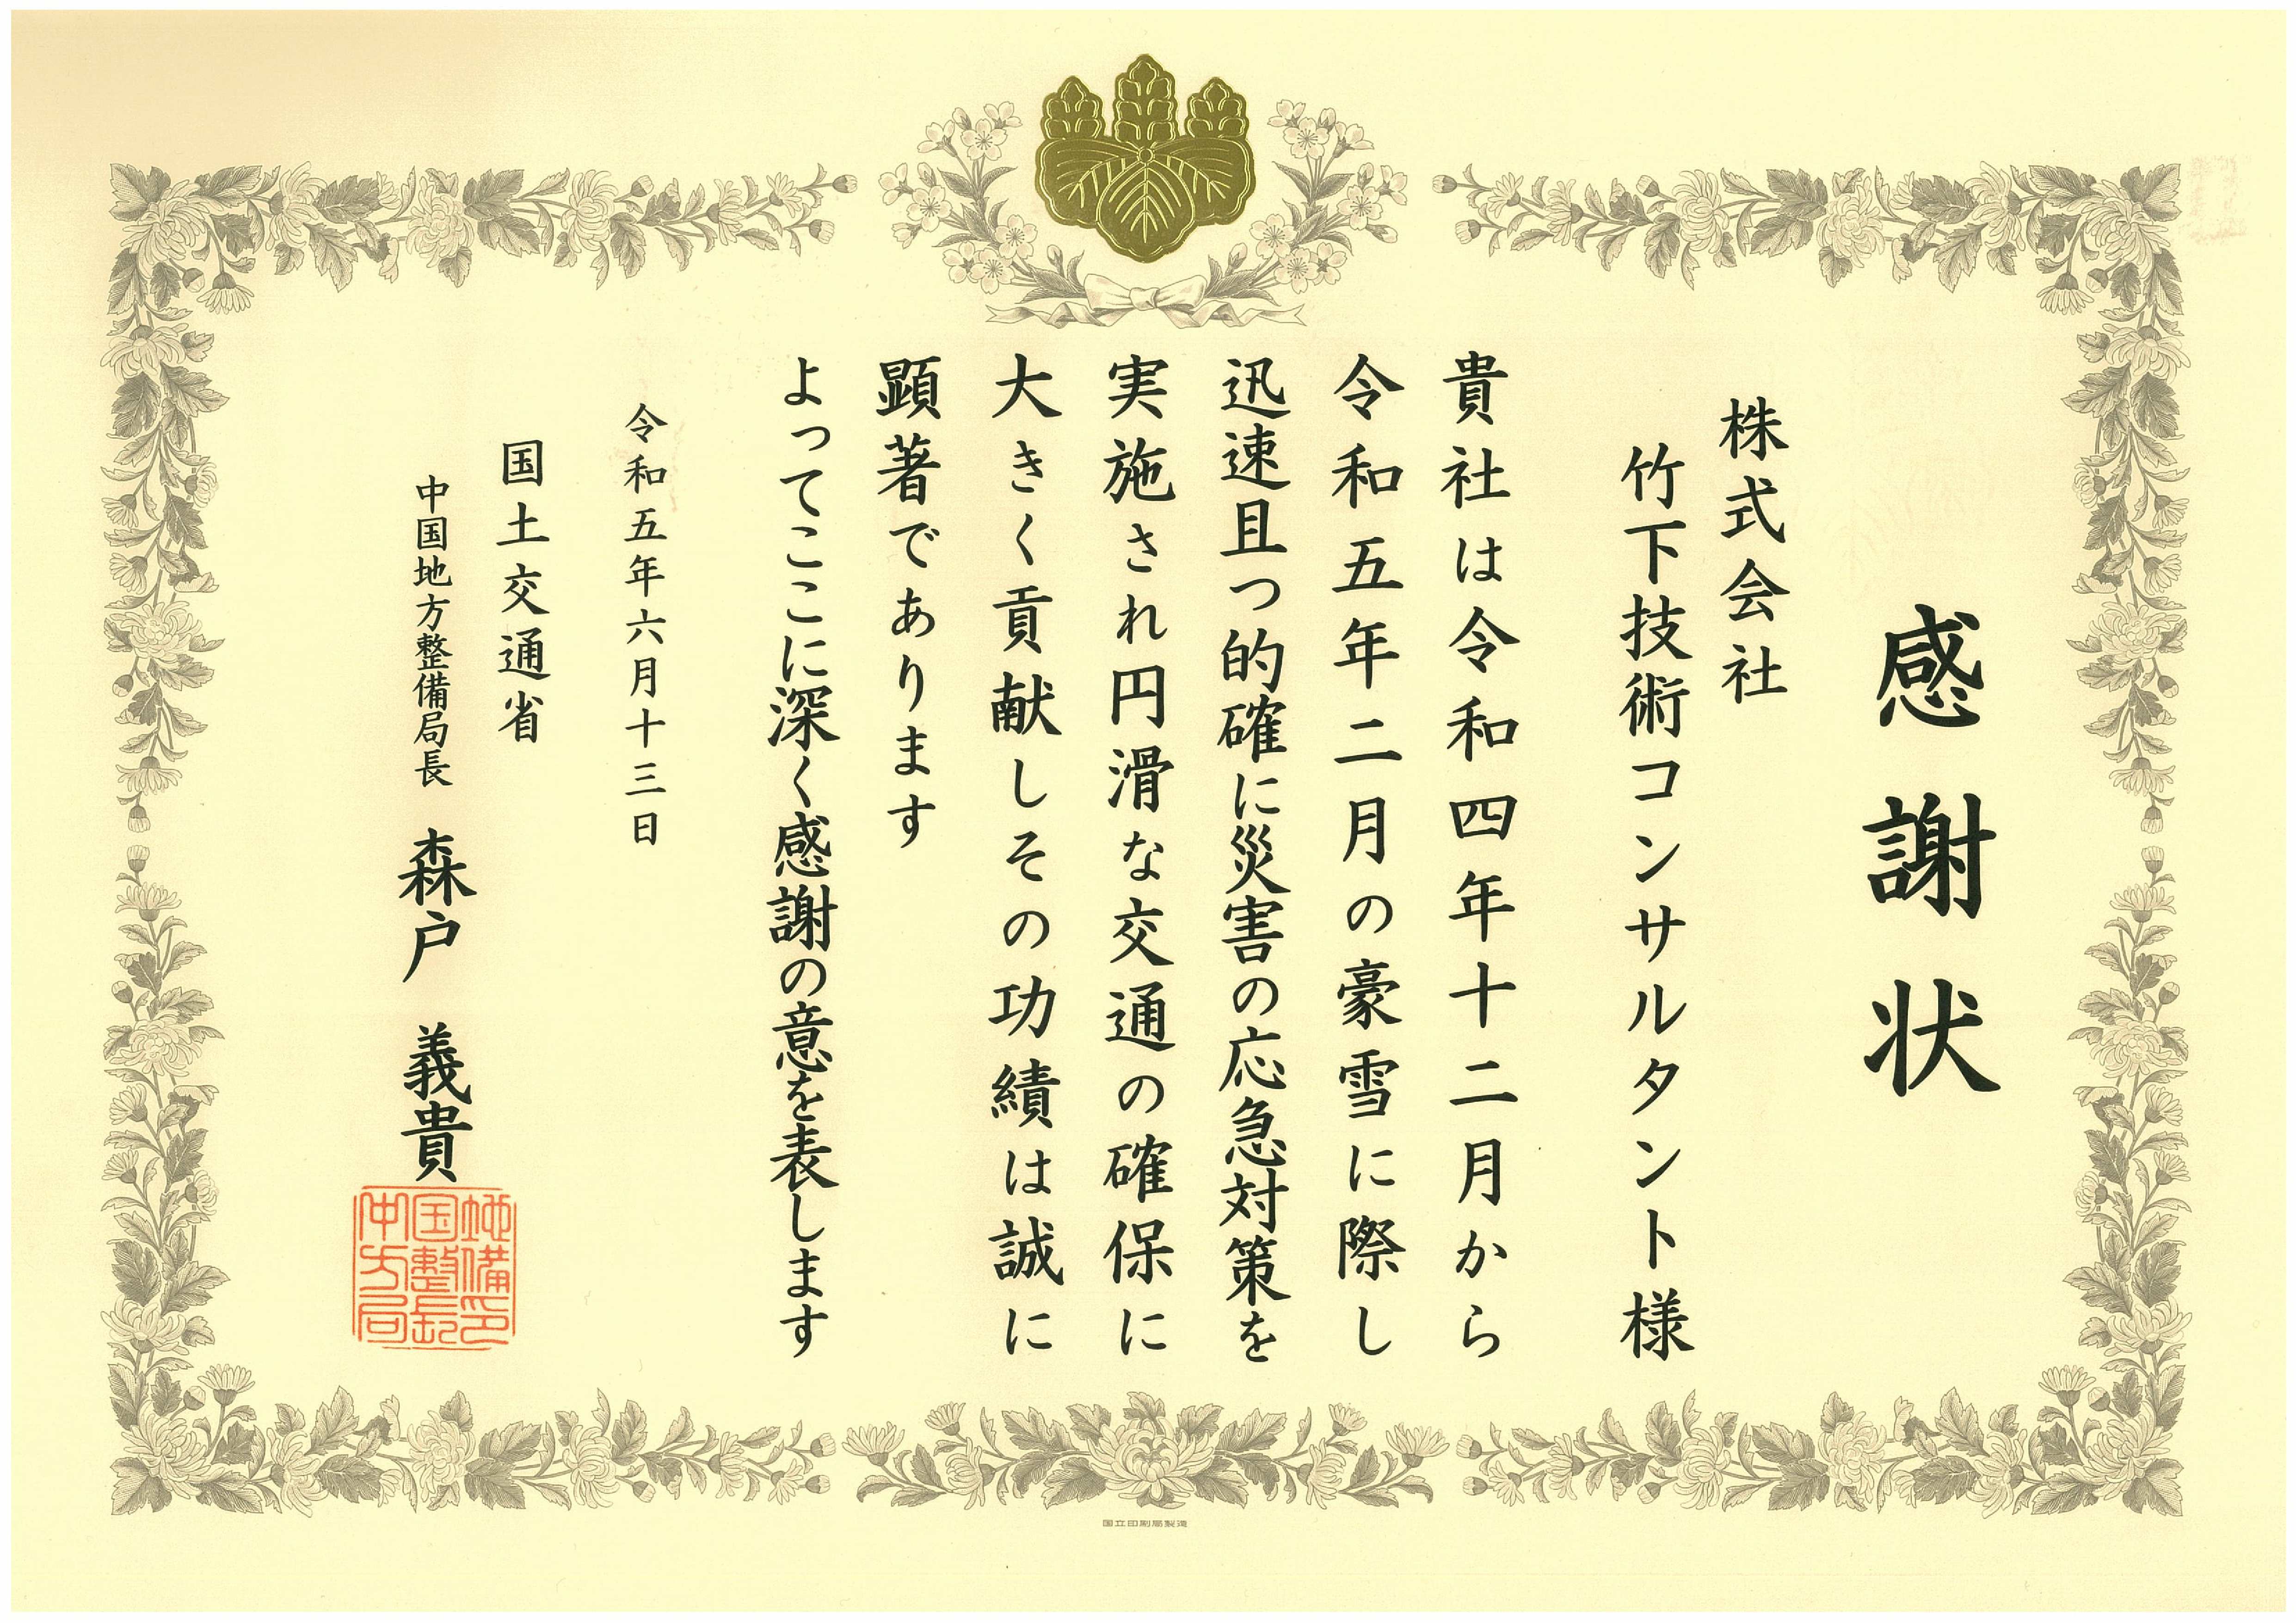 感謝状
株式会社
竹下技術コンサルタント様
貴社は令和四年十二月から
令和五年二月の豪雪に際し
迅速且つ的確に災害の応急対策を
実施され円滑な交通の確保に
大きく貢献しその功績は誠に
顕著であります
よってここに深く感謝の意を表します
令和五年六月十三日
国土交通省
中国地方整備局長 森戸 義貴
中国地
方整備
局長印
国立印刷局製造